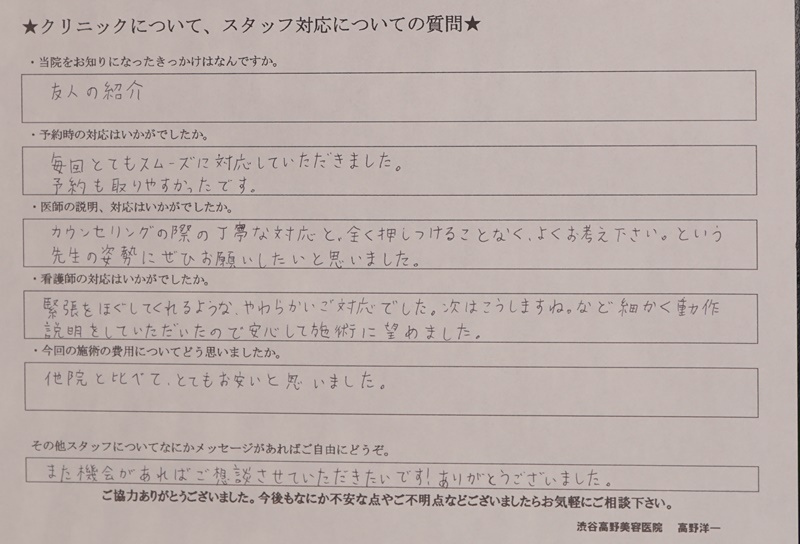 ★クリニックについて、スタッフ対応についての質問★
・当院をお知りになったきっかけはなんですか。
友人の紹介
・予約時の対応はいかがでしたか。
毎回とてもスムーズに対応していただきました。
予約も取りやすかったです。
・医師の説明、対応はいかがでしたか。
カウンセリングの際の丁寧な対応と、全く押しつけることなく、よくお考え下さい。という
先生の姿勢にぜひお願いしたいと思いました。
・看護師の対応はいかがでしたか。
緊張をほぐしてくれるような、やわらかいご対応でした。次はこうしますね。など細かく動作
説明をしていただいたので安心して施術に望めました。
・今回の施術の費用についてどう思いましたか。
他院と比べて、とてもお安いと思いました。
その他スタッフについてなにかメッセージがあればご自由にどうぞ。
また機会があればご相談させていただきたいです!ありがとうございました。
ご協力ありがとうございました。今後もなにか不安な点やご不明点などございましたらお気軽にご相談下さい。
渋谷高野美容医院 高野洋一